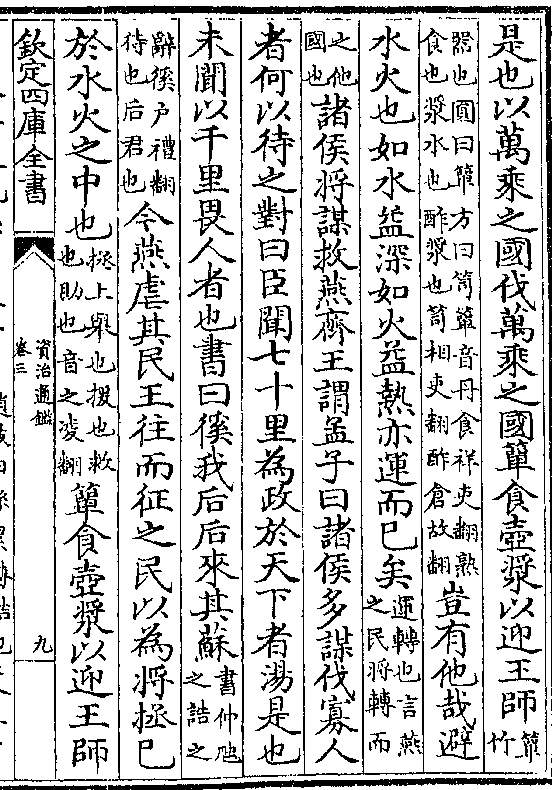 是也以萬乘之國伐萬乘之國簞食壺漿以迎王師簞竹
器也圓曰簞方曰笥簞音丹食祥吏翻熟食也漿水也酢漿也笥相吏翻酢倉故翻豈有他哉避
水火也如水益深如火益熱亦運而已矣運轉也言燕之民將轉而
之他國也諸侯將謀救燕齊王謂孟子曰諸侯多謀伐寡人
者何以待之對曰臣聞七十里為政於天下者湯是也
未聞以千里畏人者也書曰徯我后后來其蘇書仲虺之誥之
辭徯户禮翻待也后君也今燕虐其民王往而征之民以為將拯己
於水火之中也拯上舉也援也救也助也音之凌翻簞食壺漿以迎王師
欽定四庫全書
資治通鑑
卷三
九